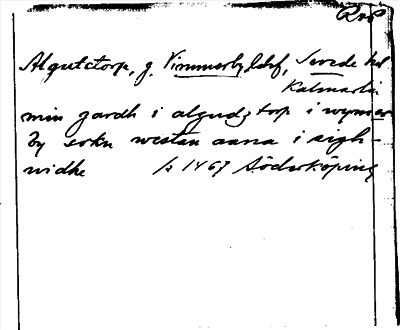 RAP
Algutstorp, g. Vimmerby ldsf, Sevede hd
Kalmar län
min gardh i algudztorp i wymar
by sokn westan aana i sigh-
widhe 1467 Söderköping